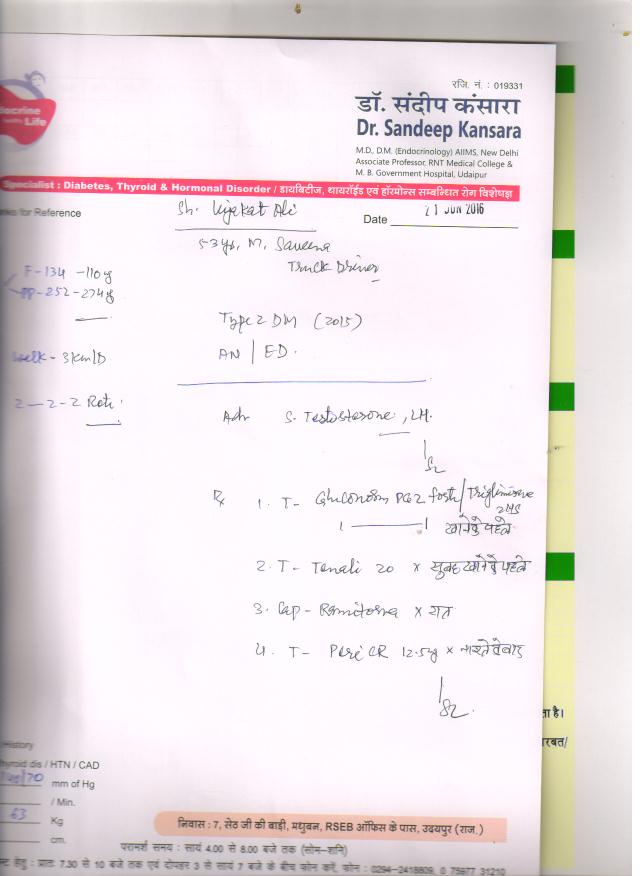 रजि. नं. : 019331
डॉ. संदीप कंसारा
Dr. Sandeep Kansara
M.D., D.M. (Endocrinology) AIIMS, New Delhi
Associate Professor, RNT Medical College &
M. B. Government Hospital, Udaipur
docrine
Life
Specialist : Diabetes, Thyroid & Hormonal Disorder / डायबिटीज, थायरॉईड एवं हॉरमोन्स सम्बन्धित रोग विशेषज्ञ
nks for Reference
Sh. Ali
Date 21 JUN 2016
53 yrs, M,
Truck Driver
F-134 -110
PP-252-274
Type 2 DM (2015)
walk - 3km/D
AN / ED.
2-2-2 Roti
Adv S. Testosterone, LH.
Rx 1. T- PG2 /
खाने से पहले
2. T- 20 x सुबह खाने से पहले
3. Cap- x रात
4. T- CR 12.5 x नाश्ते के बाद
ता है।
रबत/
History
hyroid dis / HTN / CAD
/70 mm of Hg
/ Min.
63 Kg
cm.
निवास : 7, सेठ जी की बाड़ी, मधुबन, RSEB ऑफिस के पास, उदयपुर (राज.)
परामर्श समय : सायं 4.00 से 8.00 बजे तक (सोम-शनि)
हेतु : प्रातः 7.30 से 10 बजे तक एवं दोपहर 3 से सायं 7 बजे के बीच फोन करें, फोन : 0294-2418809, 0 75977 31210